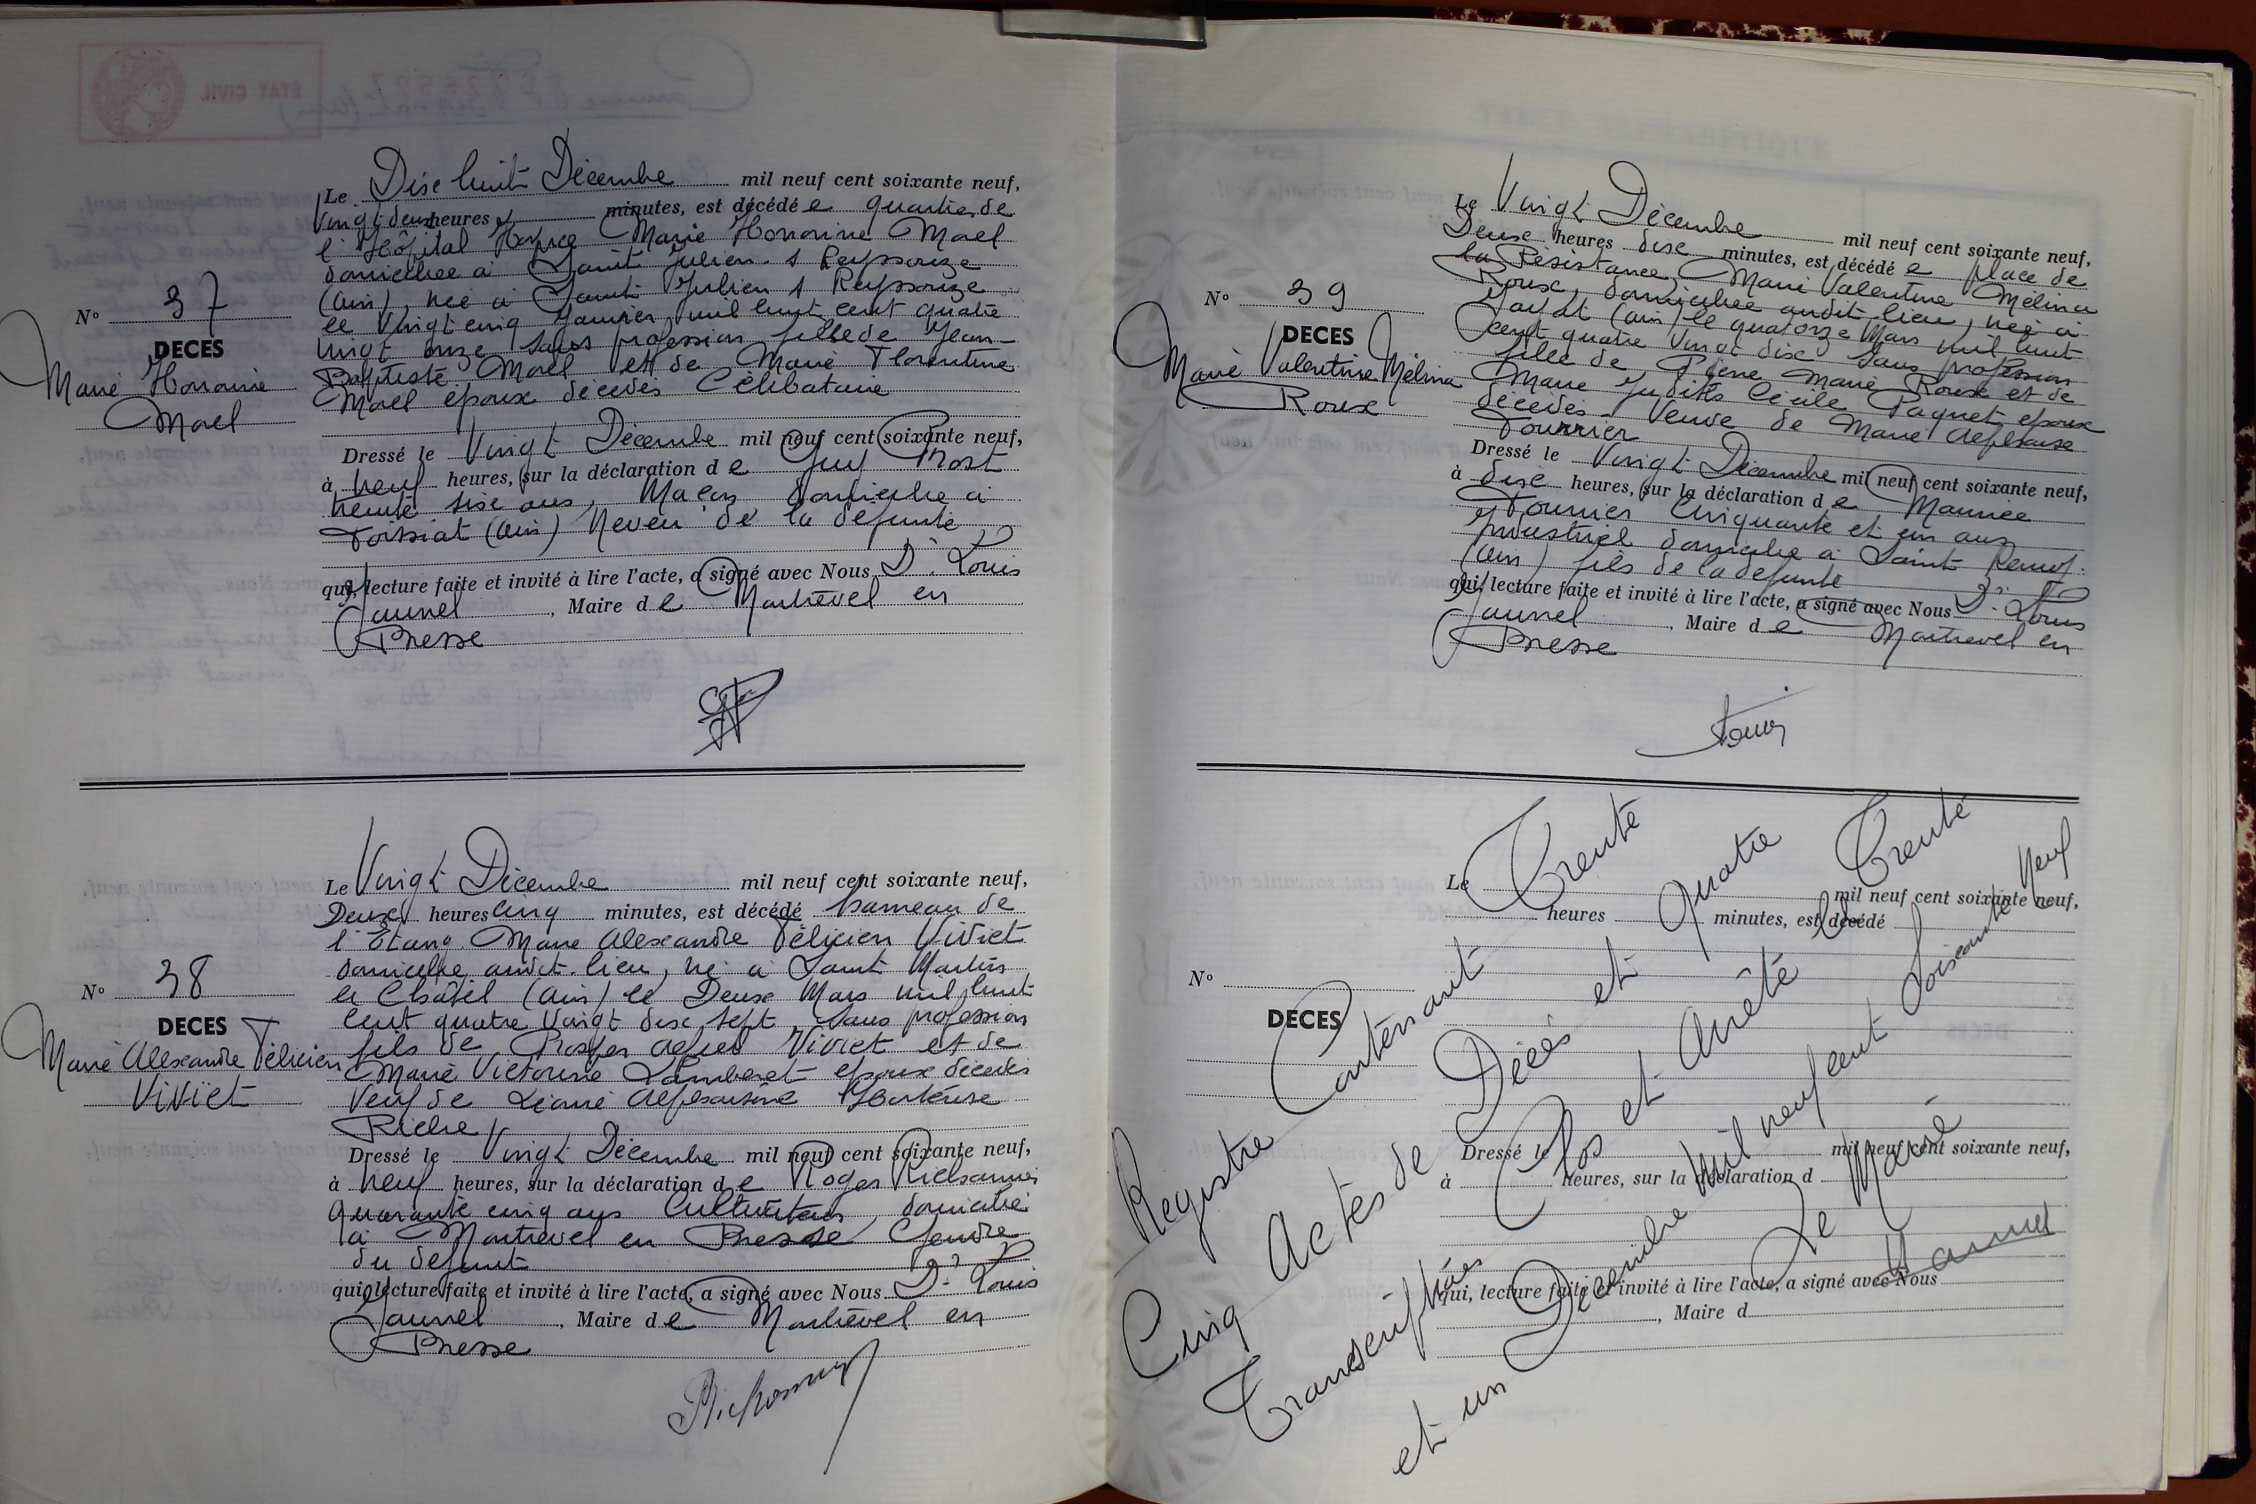 ÉTAT CIVIL
Le Dix huit Décembre mil neuf cent soixante neuf,
vingt deux heures minutes, est décédée quartier de
l'Hôpital Hospice Marie Honorine Moel
domiciliée à Saint Julien s Reyssouze
(ain), née à Saint Julien s Reyssouze
le vingt cinq Janvier mil huit cent quatre
vingt onze sans profession fille de Jean-
Baptiste Moel et de Marie Florentine
Moel époux décédés Célibataire
N° 37
DECES
Marie Honorine
Moel
Dressé le Vingt Décembre mil neuf cent soixante neuf,
à neuf heures, sur la déclaration de Guy Prost
trente six ans, Maçon domicilié à
Foissiat (ain) Neveu de la défunte
qui, lecture faite et invité à lire l'acte, a signé avec Nous Dr. Louis
Jaunel, Maire de Montrevel en
Bresse
Le Vingt Décembre mil neuf cent soixante neuf,
Deux heures Cinq minutes, est décédé hameau de
l'Etang Marie Alexandre Félicien Viviet
domicilié audit lieu, né à Saint Martin
le Châtel (ain) le Deux Mars mil huit
cent quatre vingt dix sept, sans profession
fils de Prosper Viviet et de
Marie Victorine Lamberet époux décédés
Veuf de Alphonsine Hortense
Riche
N° 38
DECES
Marie Alexandre Félicien
Viviet
Dressé le Vingt Décembre mil neuf cent soixante neuf,
à neuf heures, sur la déclaration de Roger
quarante cinq ans Cultivateur, domicilié
à Montrevel en Bresse Gendre
du défunt
qui, lecture faite et invité à lire l'acte, a signé avec Nous Dr. Louis
Jaunel, Maire de Montrevel en
Bresse
Le Vingt Décembre mil neuf cent soixante neuf,
Deux heures dix minutes, est décédée place de
la Résistance, Marie Valentine Mélina
Roux, domiciliée audit lieu, née à
(ain) le quatorze Mars mil huit
cent quatre vingt dix sans profession
fille de Pierre Marie Roux et de
Marie Judith Cécile Paquet époux
décédés - Veuve de Marie Alphonse
Fournier
N° 39
DECES
Marie Valentine Mélina
Roux
Dressé le Vingt Décembre mil neuf cent soixante neuf,
à dix heures, sur la déclaration de Maurice
Fournier Cinquante et un ans
Industriel domicilié à Saint Remy
(ain) fils de la défunte
qui, lecture faite et invité à lire l'acte, a signé avec Nous Dr. Louis
Jaunel, Maire de Montrevel en
Bresse
Le mil neuf cent soixante neuf,
heures minutes, est décédé
N°
DECES
Dressé le mil neuf cent soixante neuf,
à heures, sur la déclaration d
qui, lecture faite et invité à lire l'acte, a signé avec Nous
, Maire d
Registre Contenant Trente
Cinq Actes de Décès et Quatre
Transcriptions Clos et Arrêté le Trente
et un Décembre Mil neuf cent Soixante Neuf
Le Maire
Jaunel